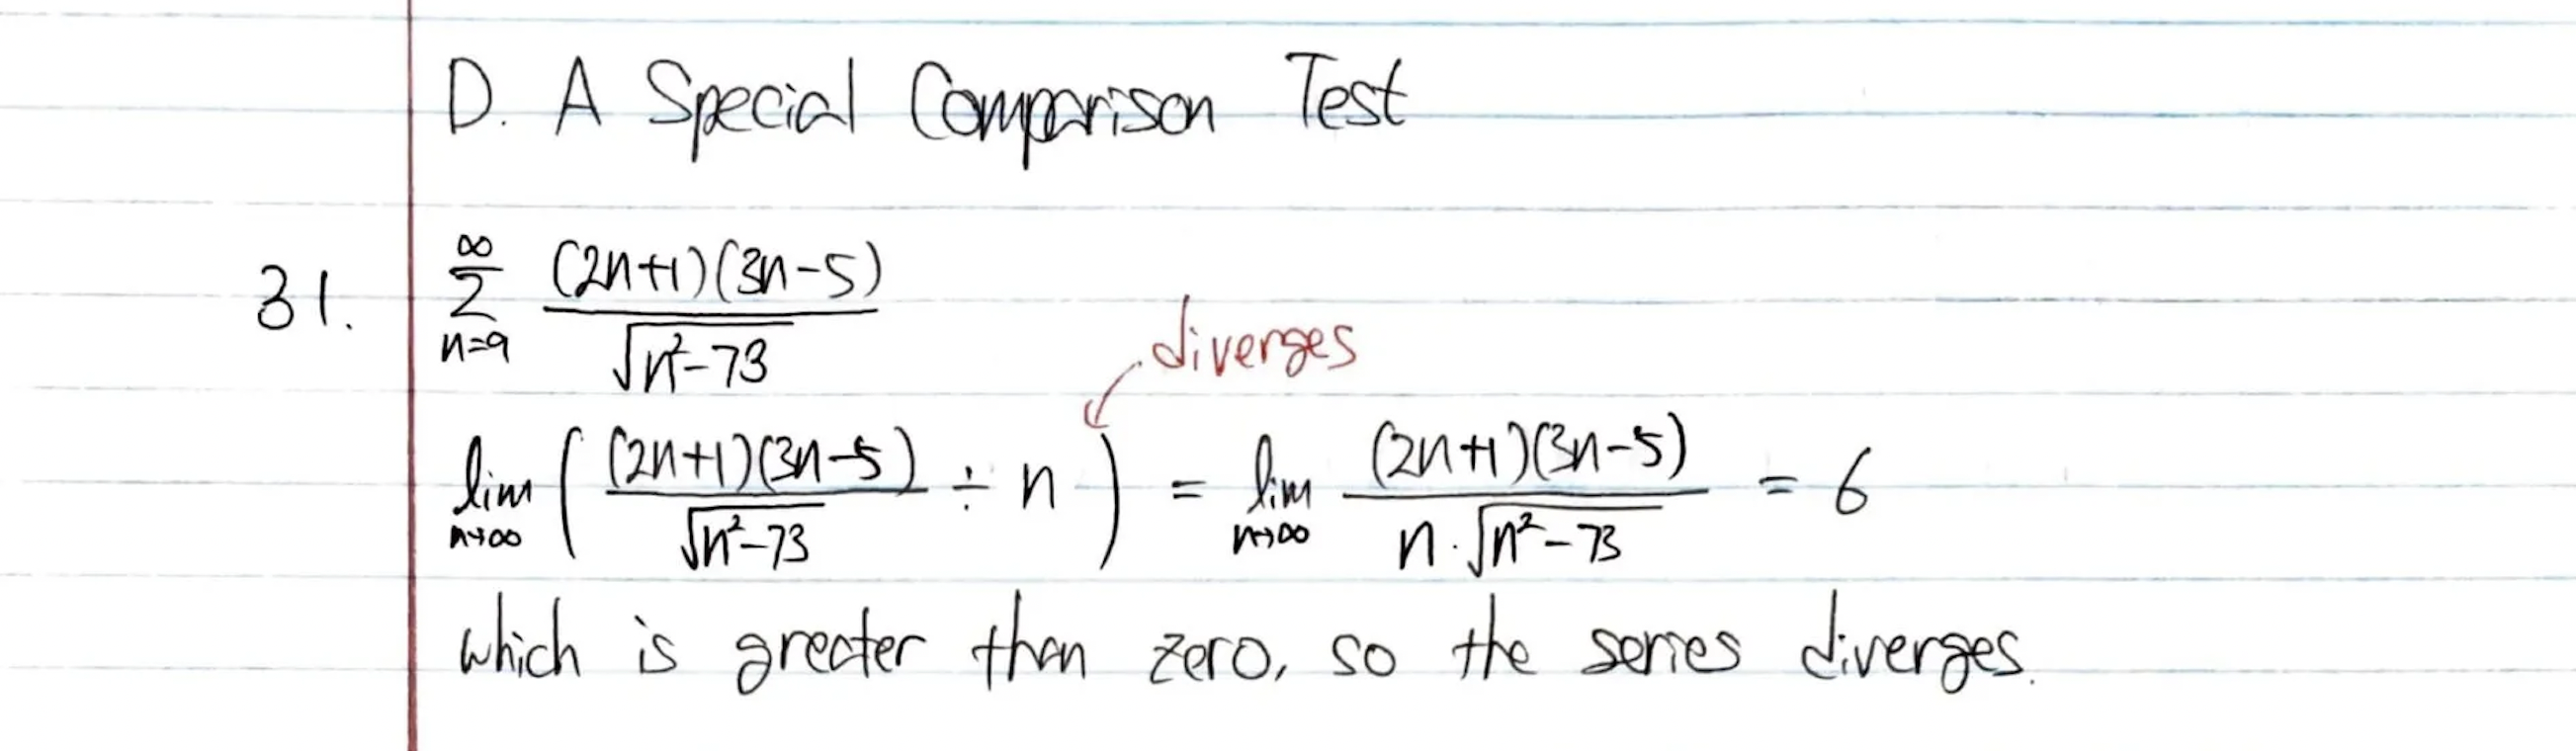 D. A Special Comparison Test
31. \sum_{n=9}^{\infty} \frac{(2n+1)(3n-5)}{\sqrt{n^2-73}}
diverges
\lim_{n \to \infty} \left( \frac{(2n+1)(3n-5)}{\sqrt{n^2-73}} \div n \right) = \lim_{n \to \infty} \frac{(2n+1)(3n-5)}{n \cdot \sqrt{n^2-73}} = 6
which is greater than zero, so the series diverges.